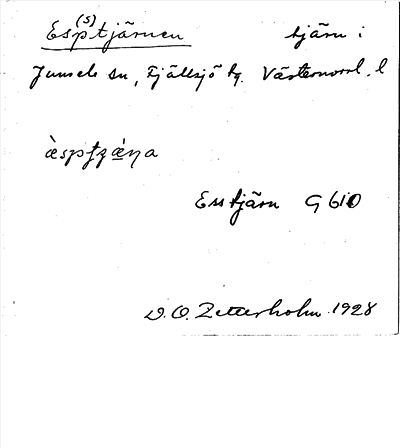 Esp(s)tjärnen tjärn i
Junsele sn, Fjällsjö tg. Västernorrl. l
Esstjärn G 610
D. O. Zetterholm 1928